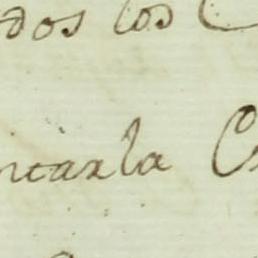 dos los C
ncarla C